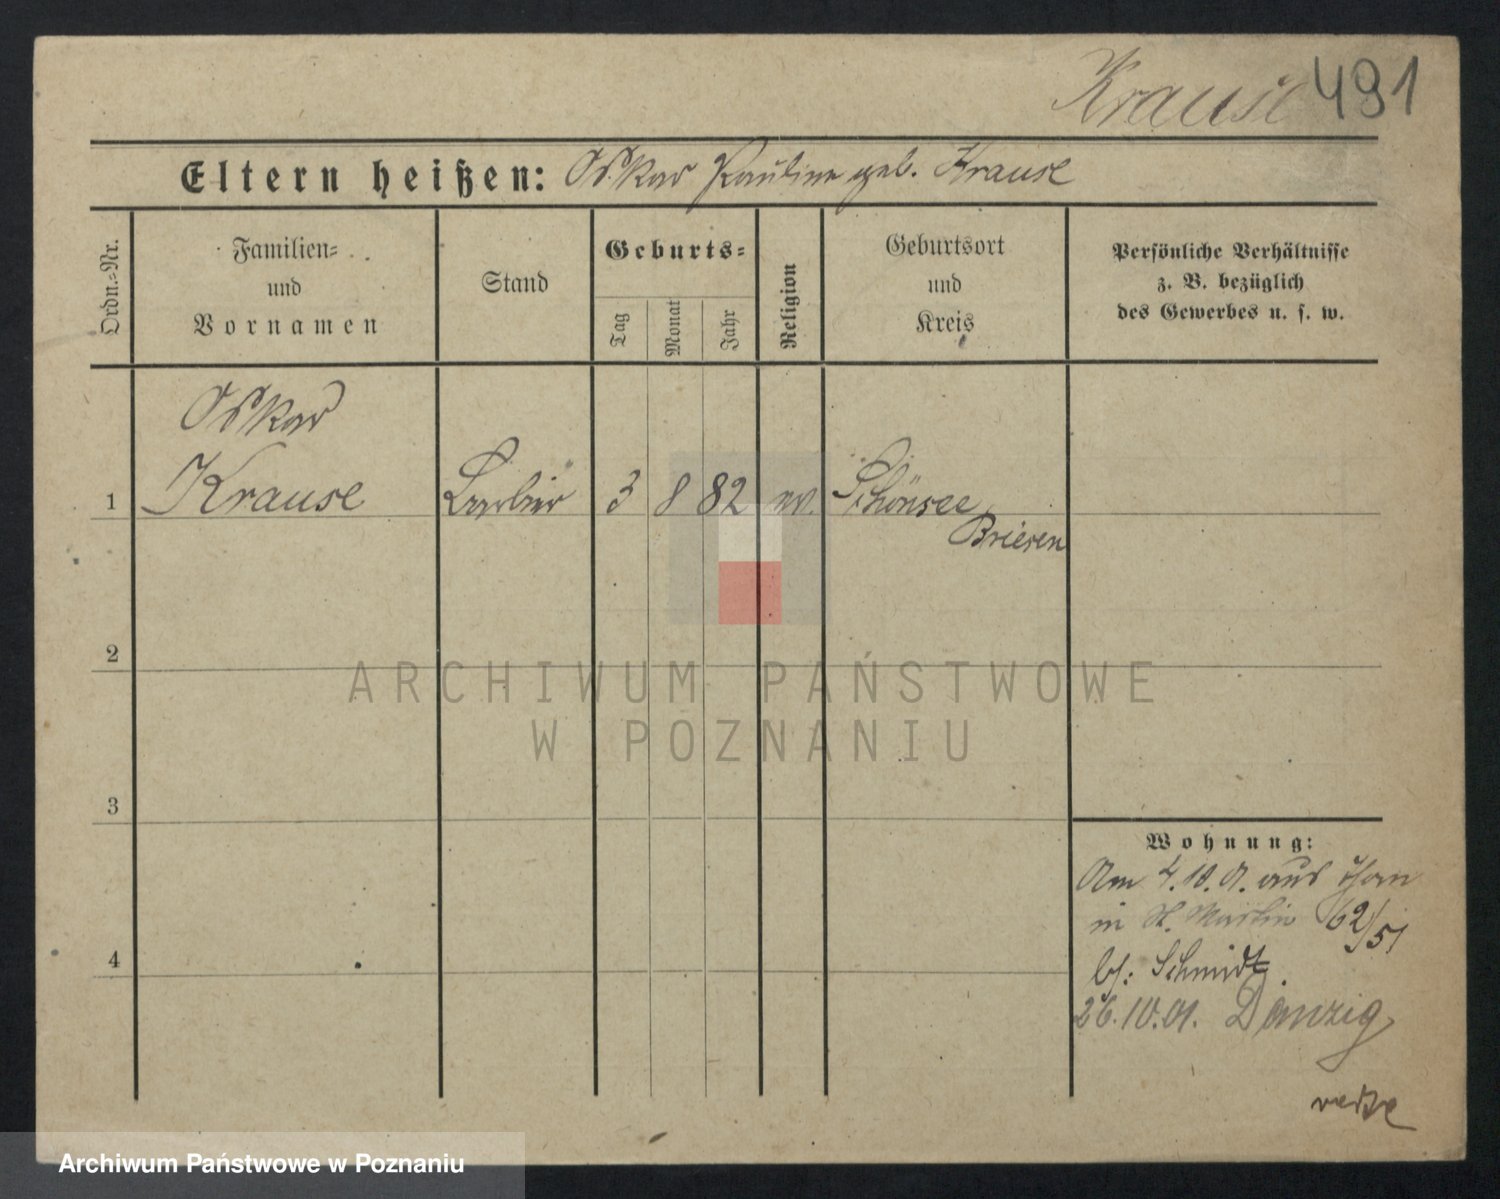 Krause 491
Eltern heißen: Oskar Pauline geb. Krause
Ordn.-Nr.
Familien-
und
Vornamen
Stand
Geburts-
Tag
Monat
Jahr
Religion
Geburtsort
und
Kreis
Persönliche Verhältnisse
z. B. bezüglich
des Gewerbes u. s. w.
Oskar
1 Krause Barbier 3 8 82 ev. Schönsee
Briesen
2
ARCHIWUM PAŃSTWOWE
W POZNANIU
3
Wohnung:
Am 4.10.01. aus Thorn
in St. Martin 62/51
bei: Schmidt.
4
26.10.01. Danzig
Archiwum Państwowe w Poznaniu